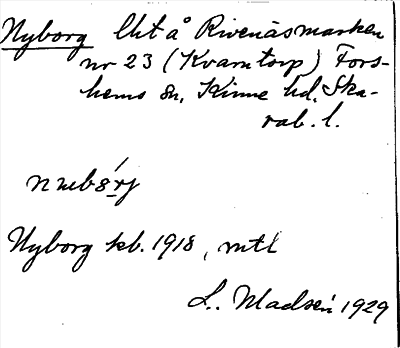 Nyborg Utå Rivenäsmarken
nr 23 (Kvarntorp) Fors-
hems sn, Kinne hd. Ska-
rab. l.
Nyborg kb. 1918, mtl
L. Madsén 1929